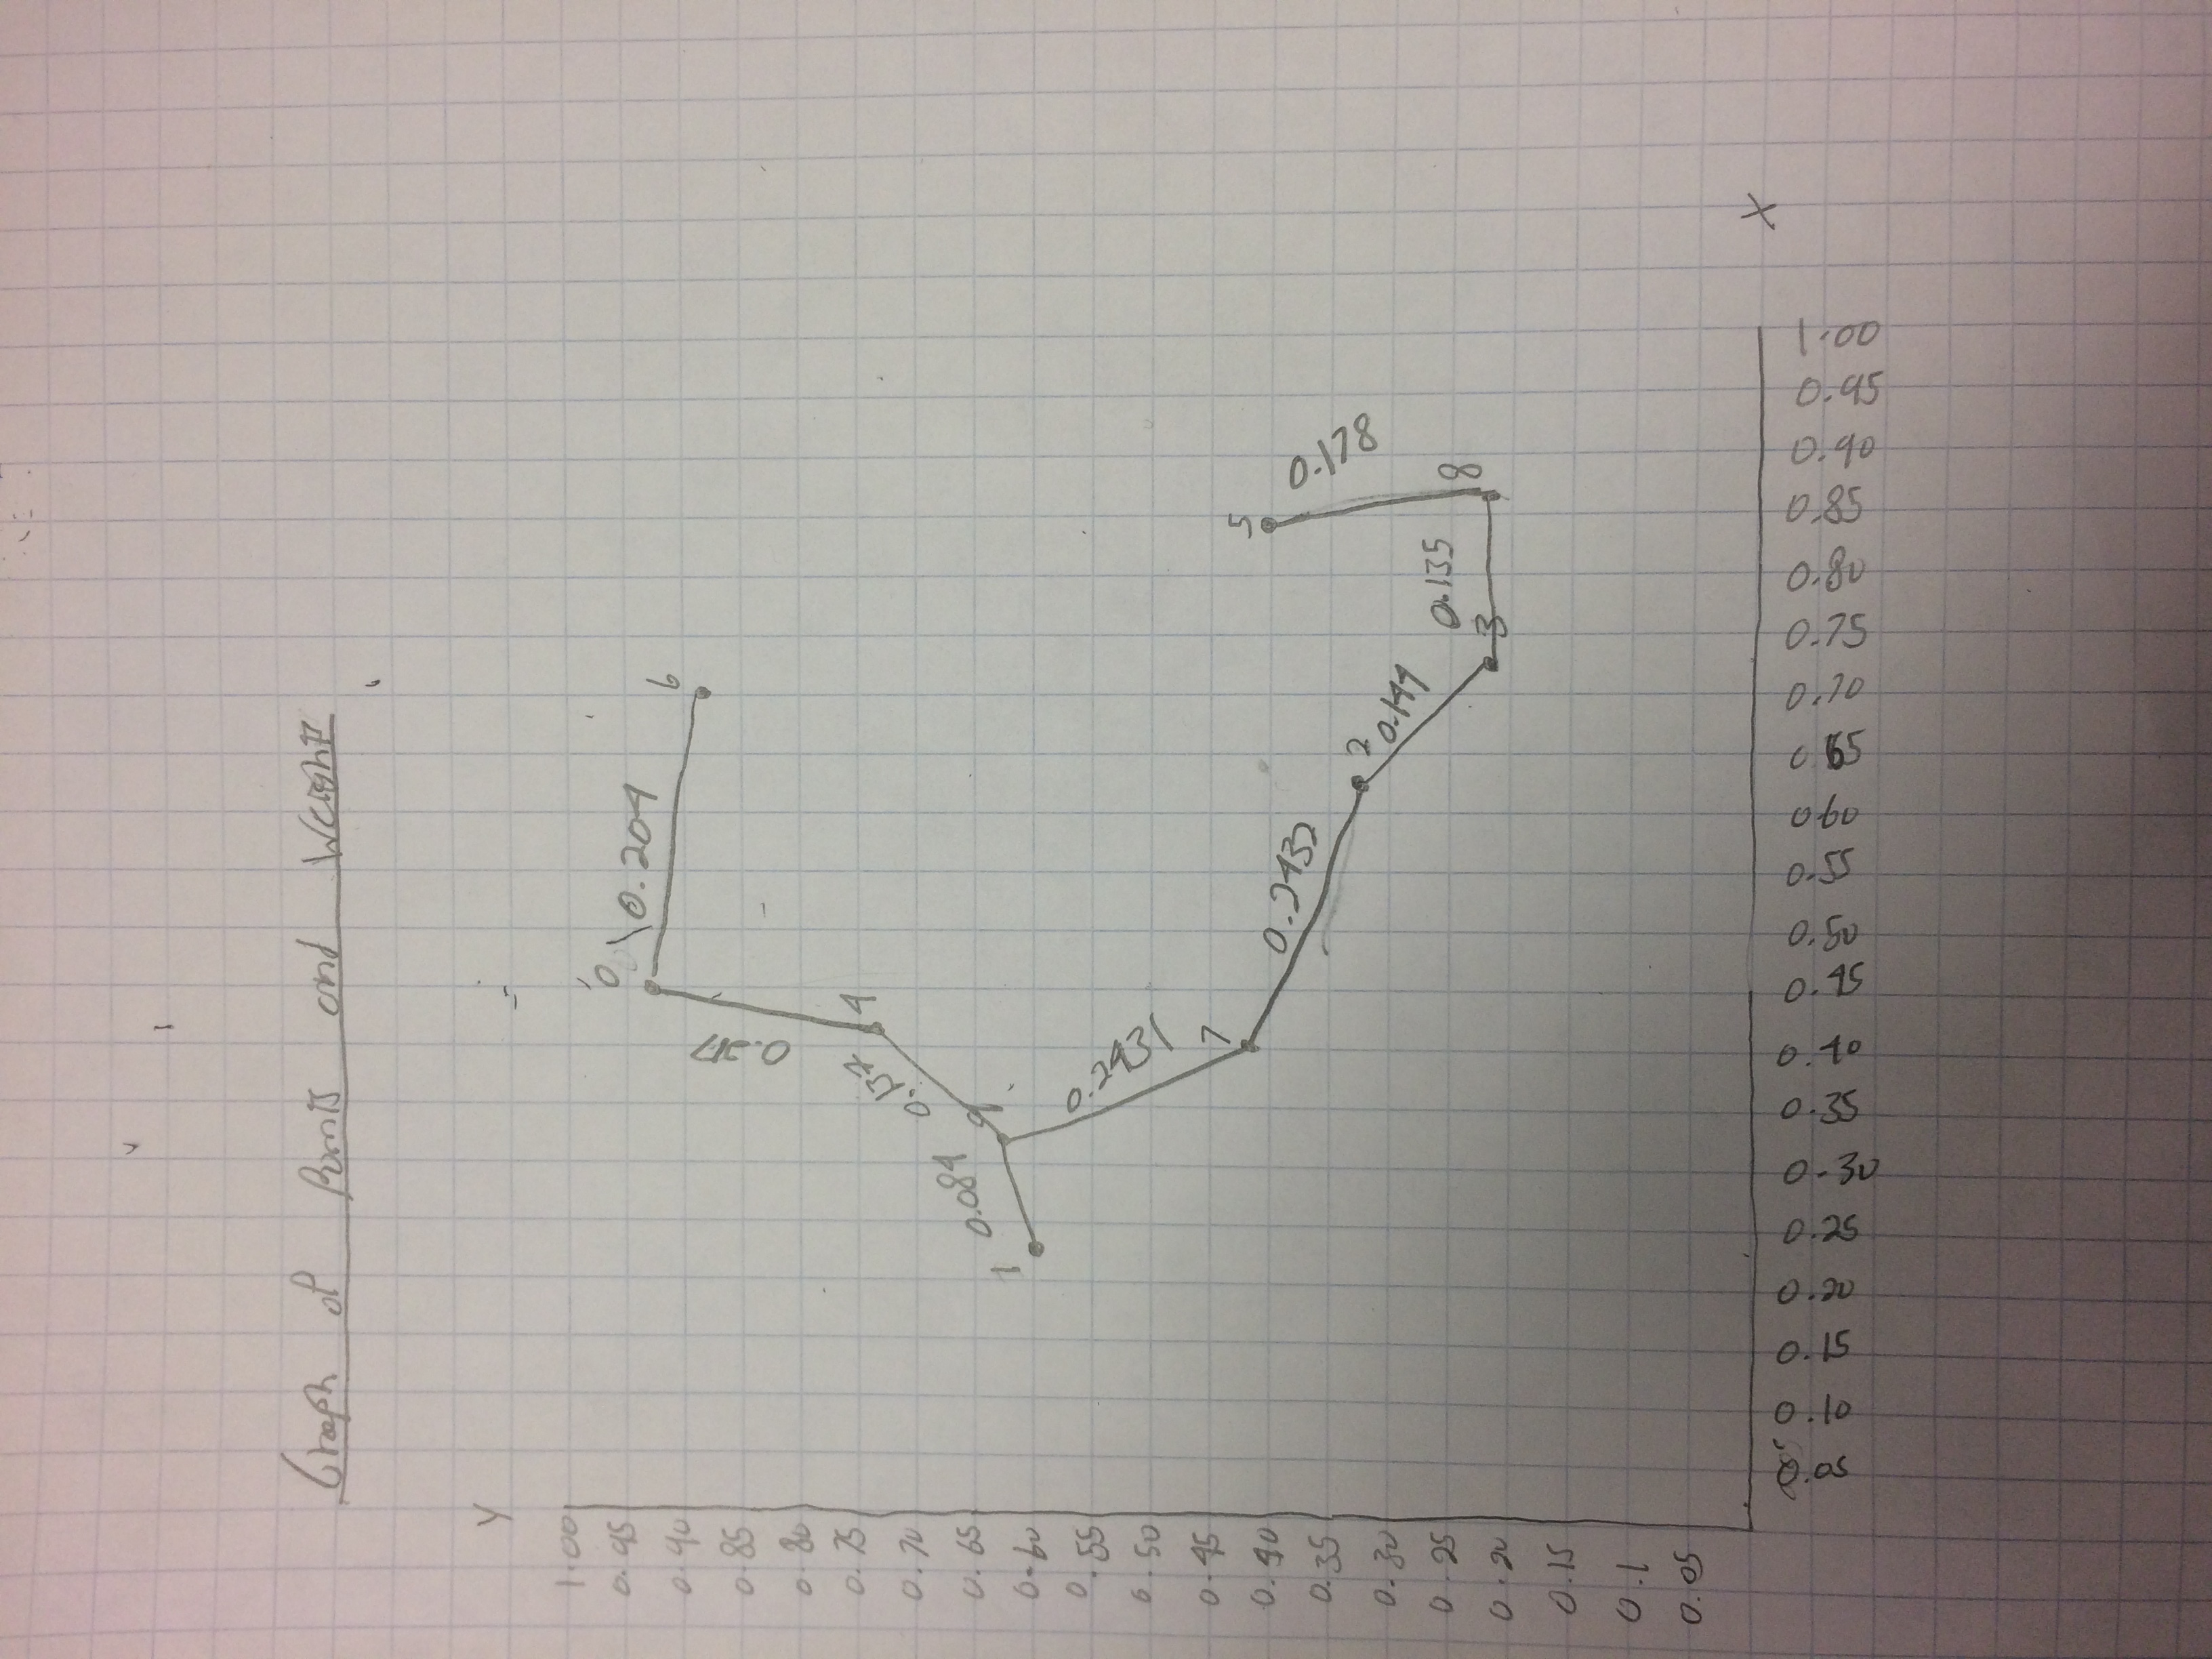 Graph of Points and Weights
Y
1.00
0.95
0.90
0.85
0.80
0.75
0.70
0.65
0.60
0.55
0.50
0.45
0.40
0.35
0.30
0.25
0.20
0.15
0.1
0.05
0
0.204
6
4
0.137
0.084
9
1
0.2431
7
0.2432
5
0.178
2
0.144
0.135
8
3
X
0.05
0.10
0.15
0.20
0.25
0.30
0.35
0.40
0.45
0.50
0.55
0.60
0.65
0.70
0.75
0.80
0.85
0.90
0.95
1.00